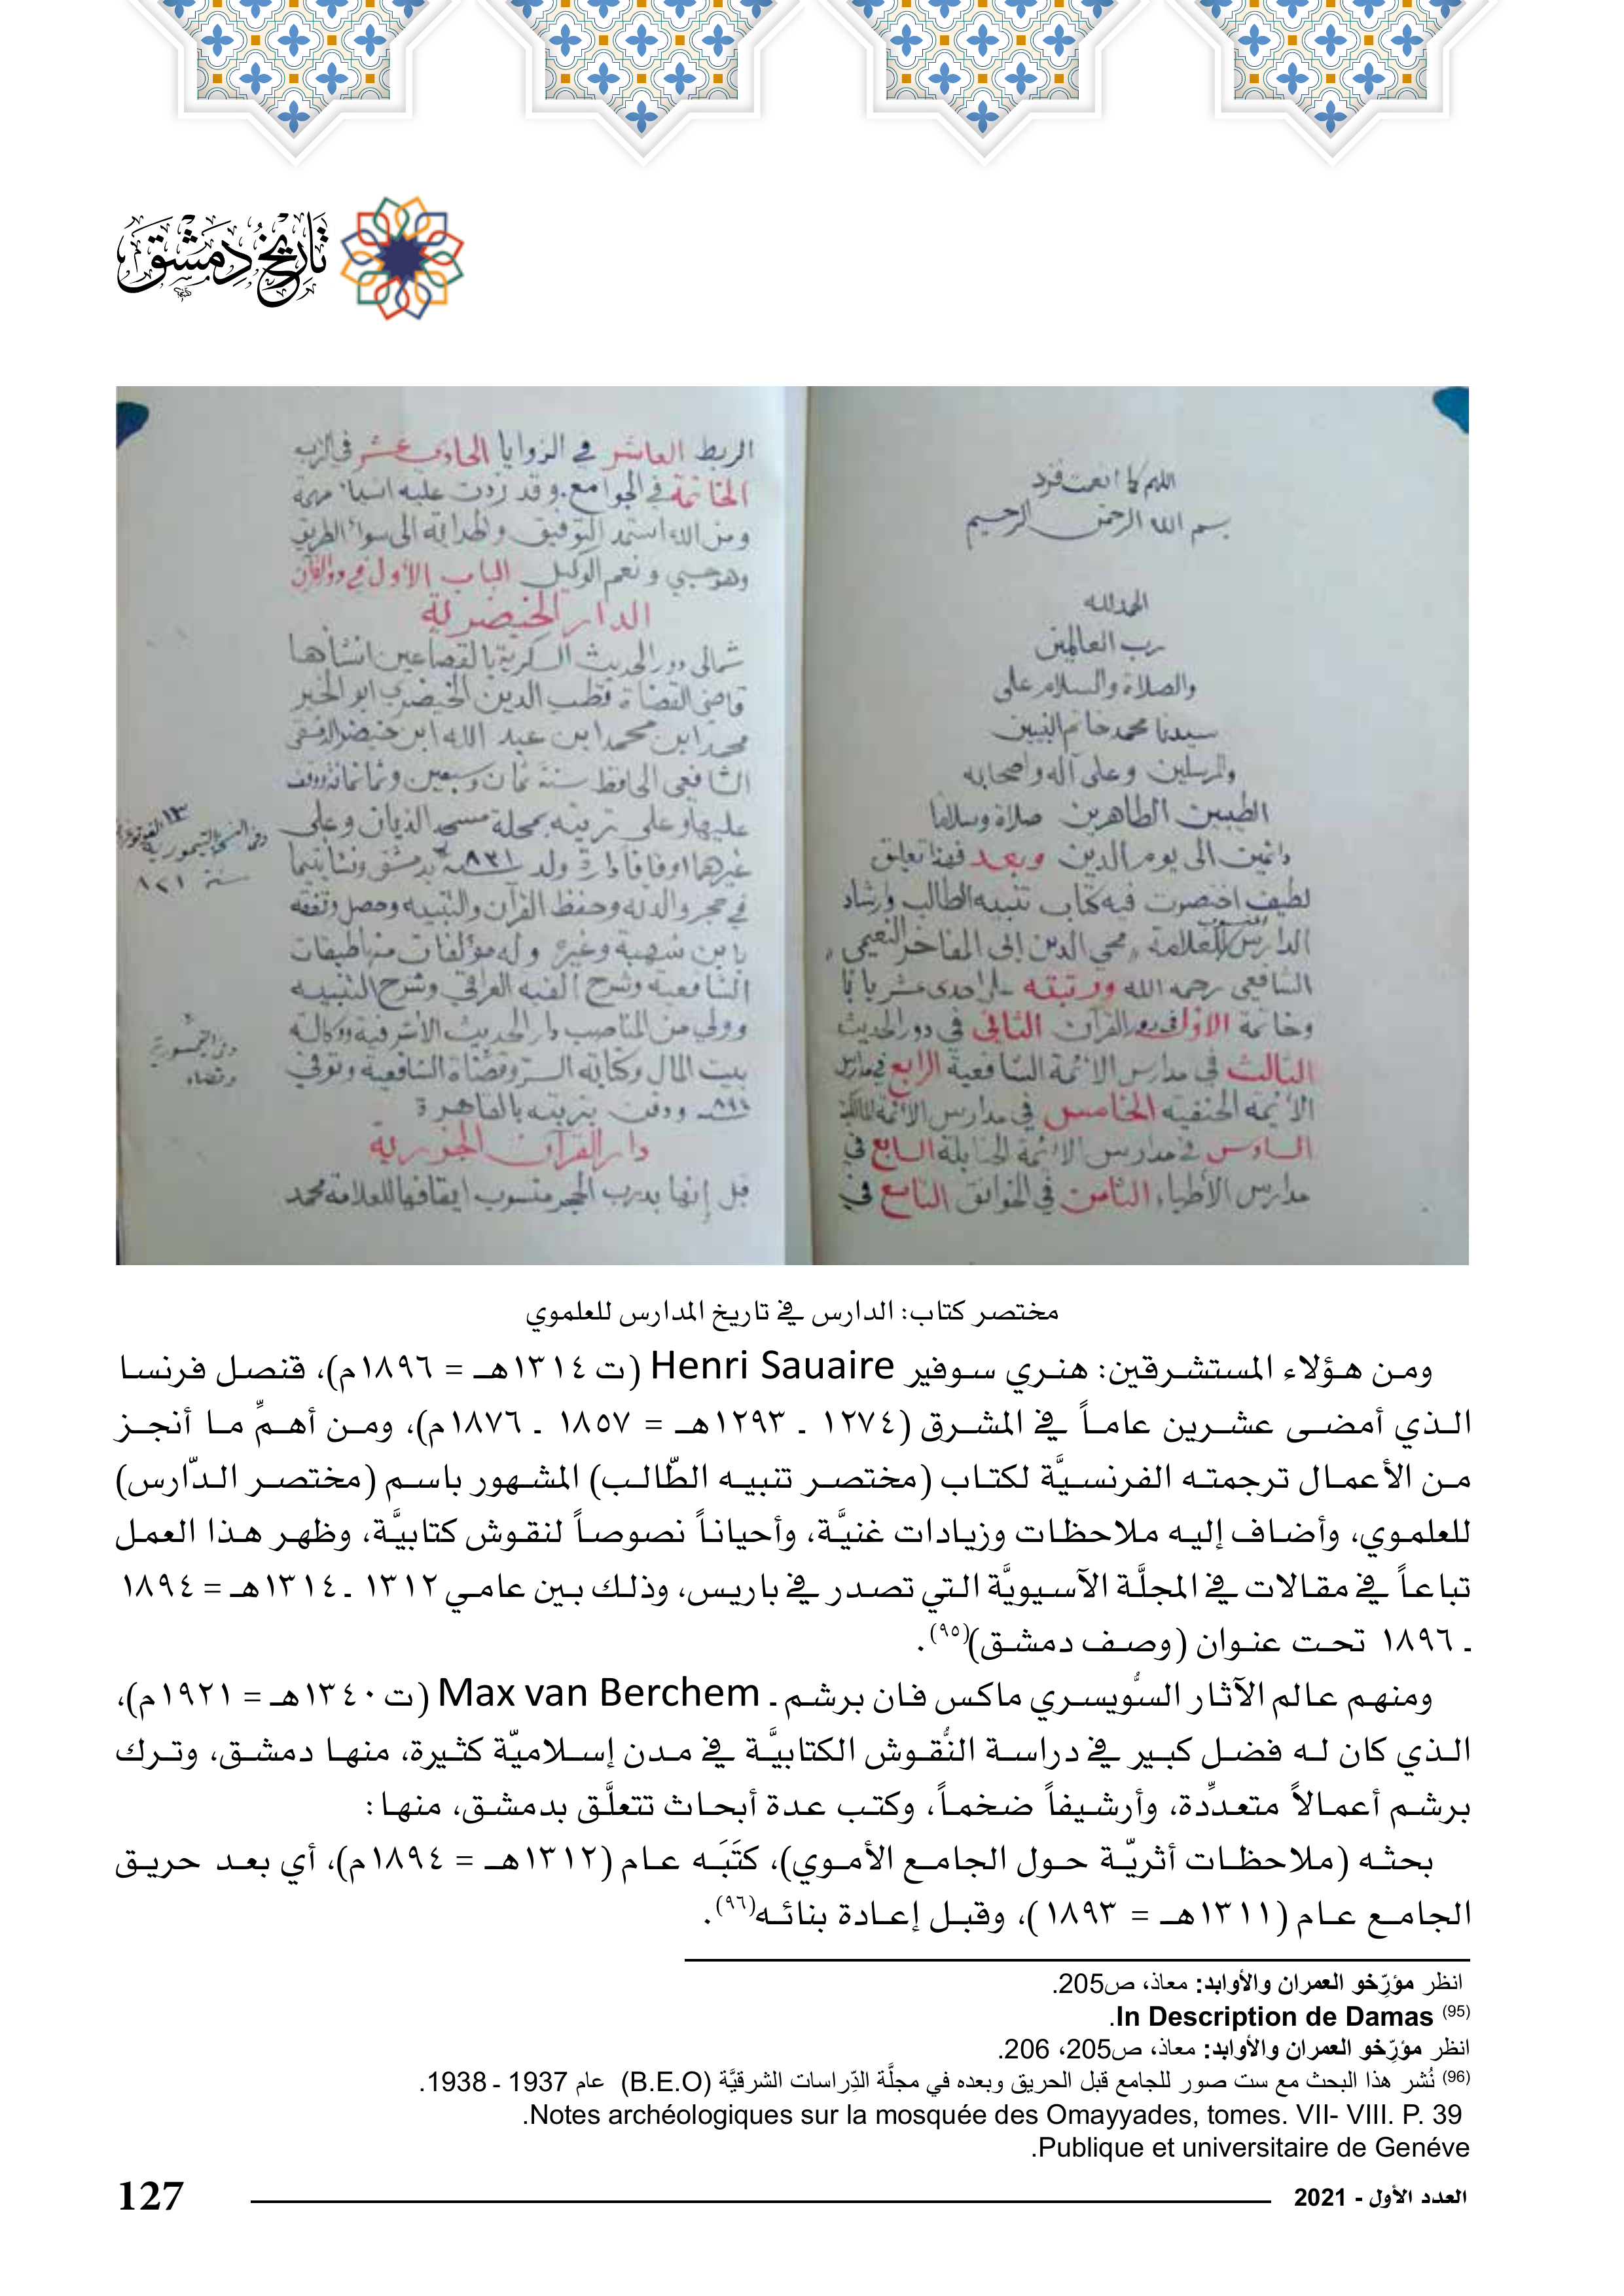 تاريخ دمشق
اللهم كما انعمت فزد
بسم الله الرحمن الرحيم
الحمد لله
رب العالمين
والصلاة والسلام على
سيدنا محمد خاتم النبيين
والمرسلين وعلى آله واصحابه
الطيبين الطاهرين صلاة وسلاما
دائمين الى يوم الدين وبعد فهذا تعليق
لطيف اختصرت فيه كتاب تنبيه الطالب وارشاد
الدارس المنسوب للعلامة محي الدين ابي المفاخر النعيمي
الشافعي رحمه الله ورتبته احدى عشر بابا
وخاتمة الاول في دور القرآن الثاني في دور الحديث
الثالث في مدارس الائمة الشافعية الرابع في مدارس
الائمة الحنفيه الخامس في مدارس الائمة المالكية
السادس في مدارس الائمة الحنابلة السابع في
مدارس الأطباء الثامن في الخوانق التاسع في
الربط العاشر في الزوايا الحادي عشر في الترب
الخاتمة في الجوامع. وقد زدت عليه اشياء مهمة
ومن الله استمد التوفيق والهداية الى سواء الطريق
وهو حسبي ونعم الوكيل الباب الأول في دور القرآن
الدار الخيضرية
شمالي دور الحديث السكرية بالقصاعين انشأها
قاضي القضاة قطب الدين الخيضري ابو الخير
محمد ابن محمد ابن عبد الله ابن خيضر الدمشقي
الشافعي الحافظ سنة ثمان وسبعين وثمانمائة ووقف
عليها وعلى تربته بمحلة مسجد الذبان وعلى
غيرهما اوقافا دارة ولد سنة ٨٢١ بدمشق ونشأ يتيما
في حجر والدته وحفظ القرآن والتنبيه وحصل وتفقه
بابن شهبة وغيره وله مؤلفات منها طبقات
الشافعية وشرح الفية العراقي وشرح التنبيه
وولي من المناصب دار الحديث الأشرفية ووكالة
بيت المال وكتابة السر وقضاة الشافعية وتوفي
سنة ٨٩٤ ودفن بتربته بالقاهرة
دار القرآن الجزرية
قبل إنها بدرب الحجر منسوب ايقافها للعلامة محمد
سنة ٨٢١
مختصر كتاب: الدارس في تاريخ المدارس للعلموي
ومن هؤلاء المستشرقين: هنري سوفير Henri Sauaire (ت ١٣١٤هـ = ١٨٩٦م)، قنصل فرنسا
الذي أمضى عشرين عاماً في المشرق (١٢٧٤ ـ ١٢٩٣هـ = ١٨٥٧ ـ ١٨٧٦م)، ومن أهمِّ ما أنجز
من الأعمال ترجمته الفرنسيَّة لكتاب (مختصر تنبيه الطّالب) المشهور باسم (مختصر الدّارس)
للعلموي، وأضاف إليه ملاحظات وزيادات غنيَّة، وأحياناً نصوصاً لنقوش كتابيَّة، وظهر هذا العمل
تباعاً في مقالات في المجلَّة الآسيويَّة التي تصدر في باريس، وذلك بين عامي ١٣١٢ ـ ١٣١٤هـ = ١٨٩٤
ـ ١٨٩٦ تحت عنوان (وصف دمشق)(٩٥).
ومنهم عالم الآثار السُّويسري ماكس فان برشم ـ Max van Berchem (ت ١٣٤٠هـ = ١٩٢١م)،
الذي كان له فضل كبير في دراسة النُّقوش الكتابيَّة في مدن إسلاميّة كثيرة، منها دمشق، وترك
برشم أعمالاً متعدِّدة، وأرشيفاً ضخماً، وكتب عدة أبحاث تتعلَّق بدمشق، منها:
بحثه (ملاحظات أثريّة حول الجامع الأموي)، كتَبَه عام (١٣١٢هـ = ١٨٩٤م)، أي بعد حريق
الجامع عام (١٣١١هـ = ١٨٩٣)، وقبل إعادة بنائه(٩٦).
انظر مؤرِّخو العمران والأوابد: معاذ، ص205.
(95) In Description de Damas.
انظر مؤرِّخو العمران والأوابد: معاذ، ص205، 206.
(96) نُشر هذا البحث مع ست صور للجامع قبل الحريق وبعده في مجلَّة الدِّراسات الشرقيَّة (B.E.O) عام 1937 ـ 1938.
Notes archéologiques sur la mosquée des Omayyades, tomes. VII- VIII. P. 39.
Publique et universitaire de Genéve.
العدد الأول - 2021
127